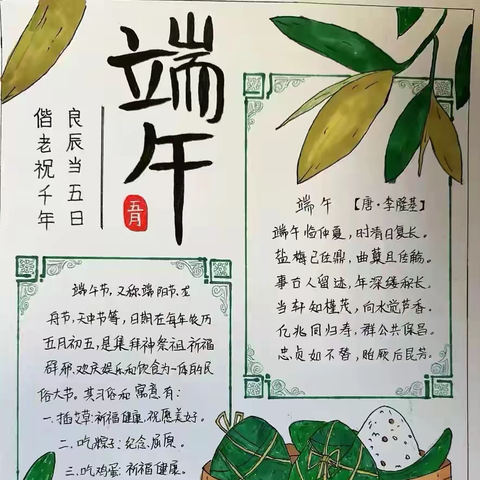 端午
五月
良辰当五日
偕老祝千年
端午 【唐·李隆基】
端午临仲夏，时清日复长。
盐梅已佐鼎，曲糵且传觞。
事古人留迹，年深缕积长。
当轩知槿茂，向水觉芦香。
亿兆同归寿，群公共保昌。
忠贞如不替，贻厥后昆芳。
端午节，又称端阳节、龙
舟节，天中节等，日期在每年农历
五月初五，是集拜神祭祖、祈福
辟邪、欢庆娱乐和饮食为一体的民
俗大节。其习俗和寓意有：
一.插艾草:祈福健康、祝愿美好。
二.吃粽子:纪念屈原。
三.吃鸡蛋:祈福健康。